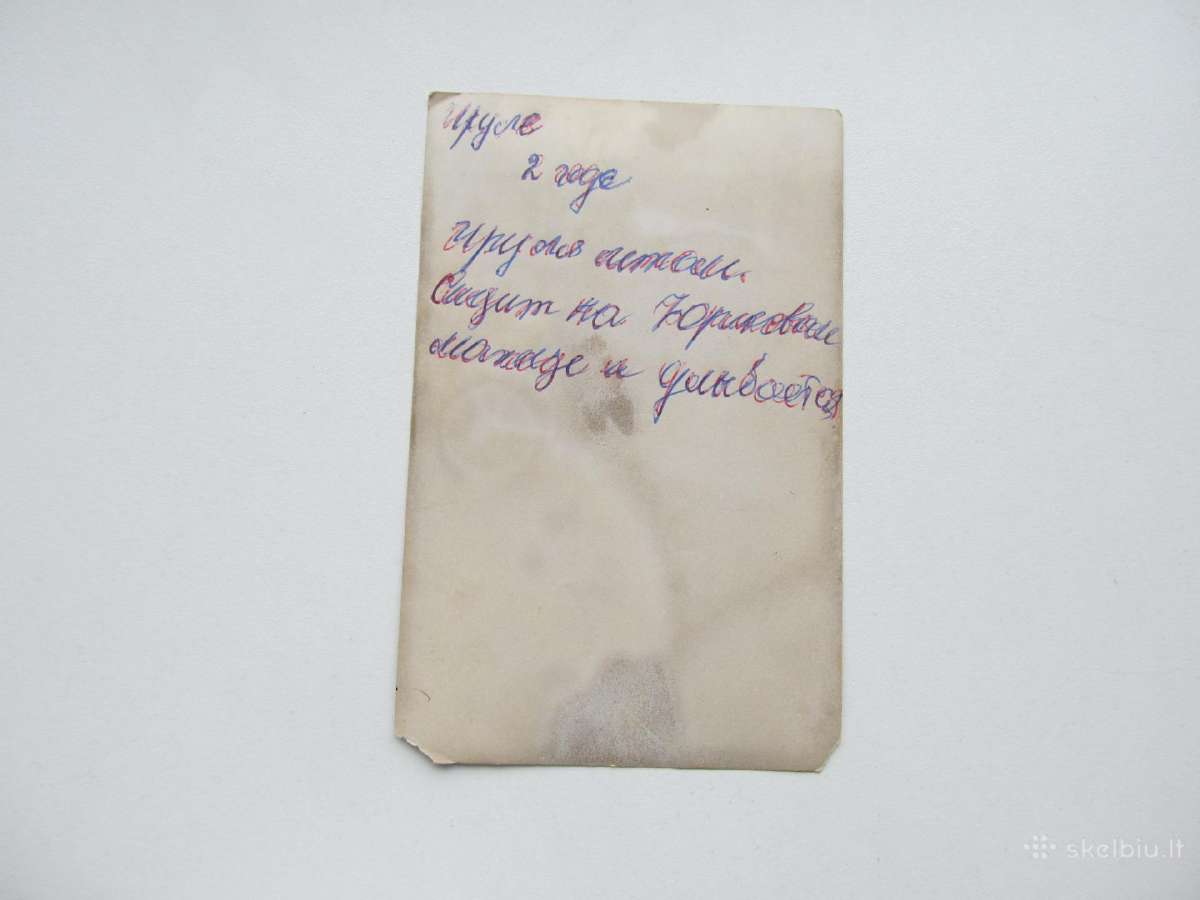 Ируле
2 года
Ируля летом.
Сидит на Юриковом
машине и улыбается
skelbiu.lt